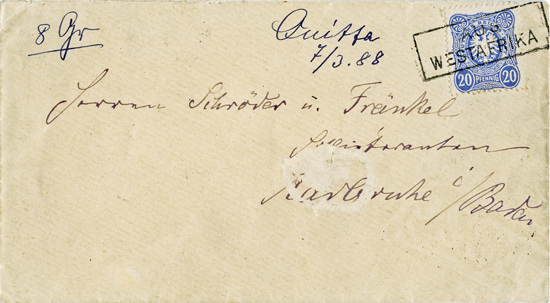 8 Gr
Quitta
7/3.88
AUS
WESTAFRIKA
20 PFENNIG 20
Herren Schröder u. Fränkel
Karlsruhe i/Baden